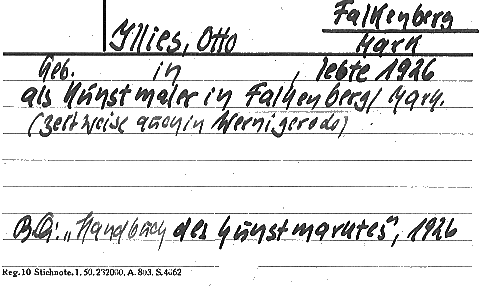 Falkenberg
Illies, Otto Mark
Geb. in , lebte 1926
als Kunstmaler in Falkenberg/Mark.
(zeitweise auch in Wernigerode)
B.Qu: „Handbuch des Kunstmarktes", 1926
Reg. 10 Stichnote. 1, 50, 232000, A. 803. S. 4662